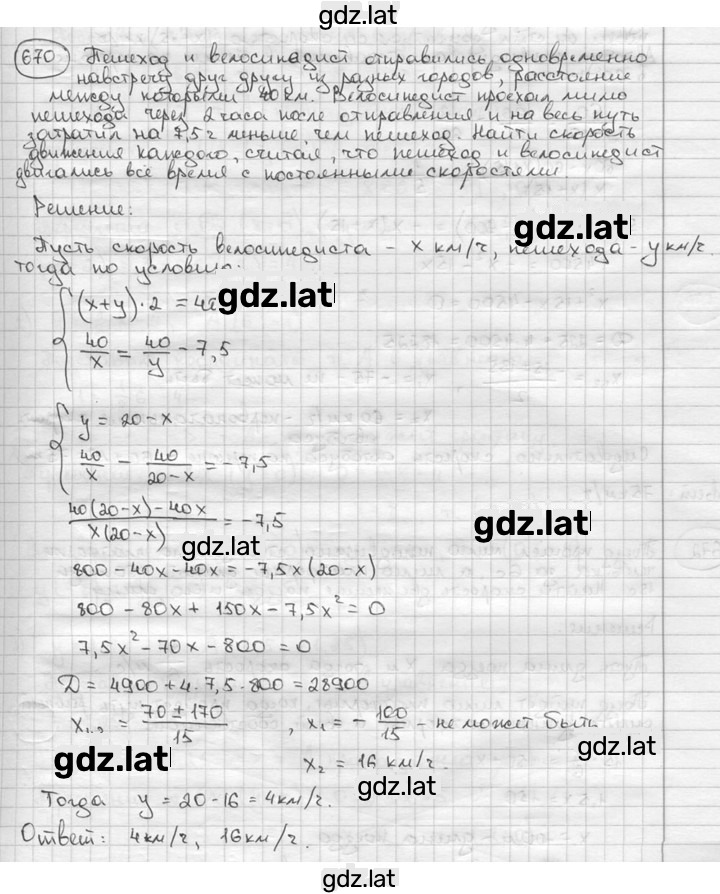 gdz.lat
670 Пешеход и велосипедист отправились одновременно
навстречу друг другу из разных городов, расстояние
между которыми 40 км. Велосипедист проехал мимо
пешехода через 2 часа после отправления и на весь путь
затратил на 7,5 ч меньше, чем пешеход. Найти скорость
движения каждого, считая, что пешеход и велосипедист
двигались всё время с постоянными скоростями.
Решение:
gdz.lat
Пусть скорость велосипедиста - x км/ч, пешехода - y км/ч.
тогда по условию:
(x+y)·2 = 40
gdz.lat
40/x = 40/y - 7,5
y = 20-x
40/x - 40/(20-x) = -7,5
(40(20-x)-40x)/(x(20-x)) = -7,5
gdz.lat
gdz.lat
800 - 40x - 40x = -7,5x(20-x)
800 - 80x + 150x - 7,5x² = 0
7,5x² - 70x - 800 = 0
D = 4900 + 4·7,5·800 = 28900
x₁,₂ = (70 ± 170)/15, x₁ = -100/15 - не может быть.
gdz.lat
gdz.lat
x₂ = 16 км/ч.
gdz.lat
Тогда y = 20-16 = 4 км/ч.
Ответ: 4 км/ч, 16 км/ч.
gdz.lat